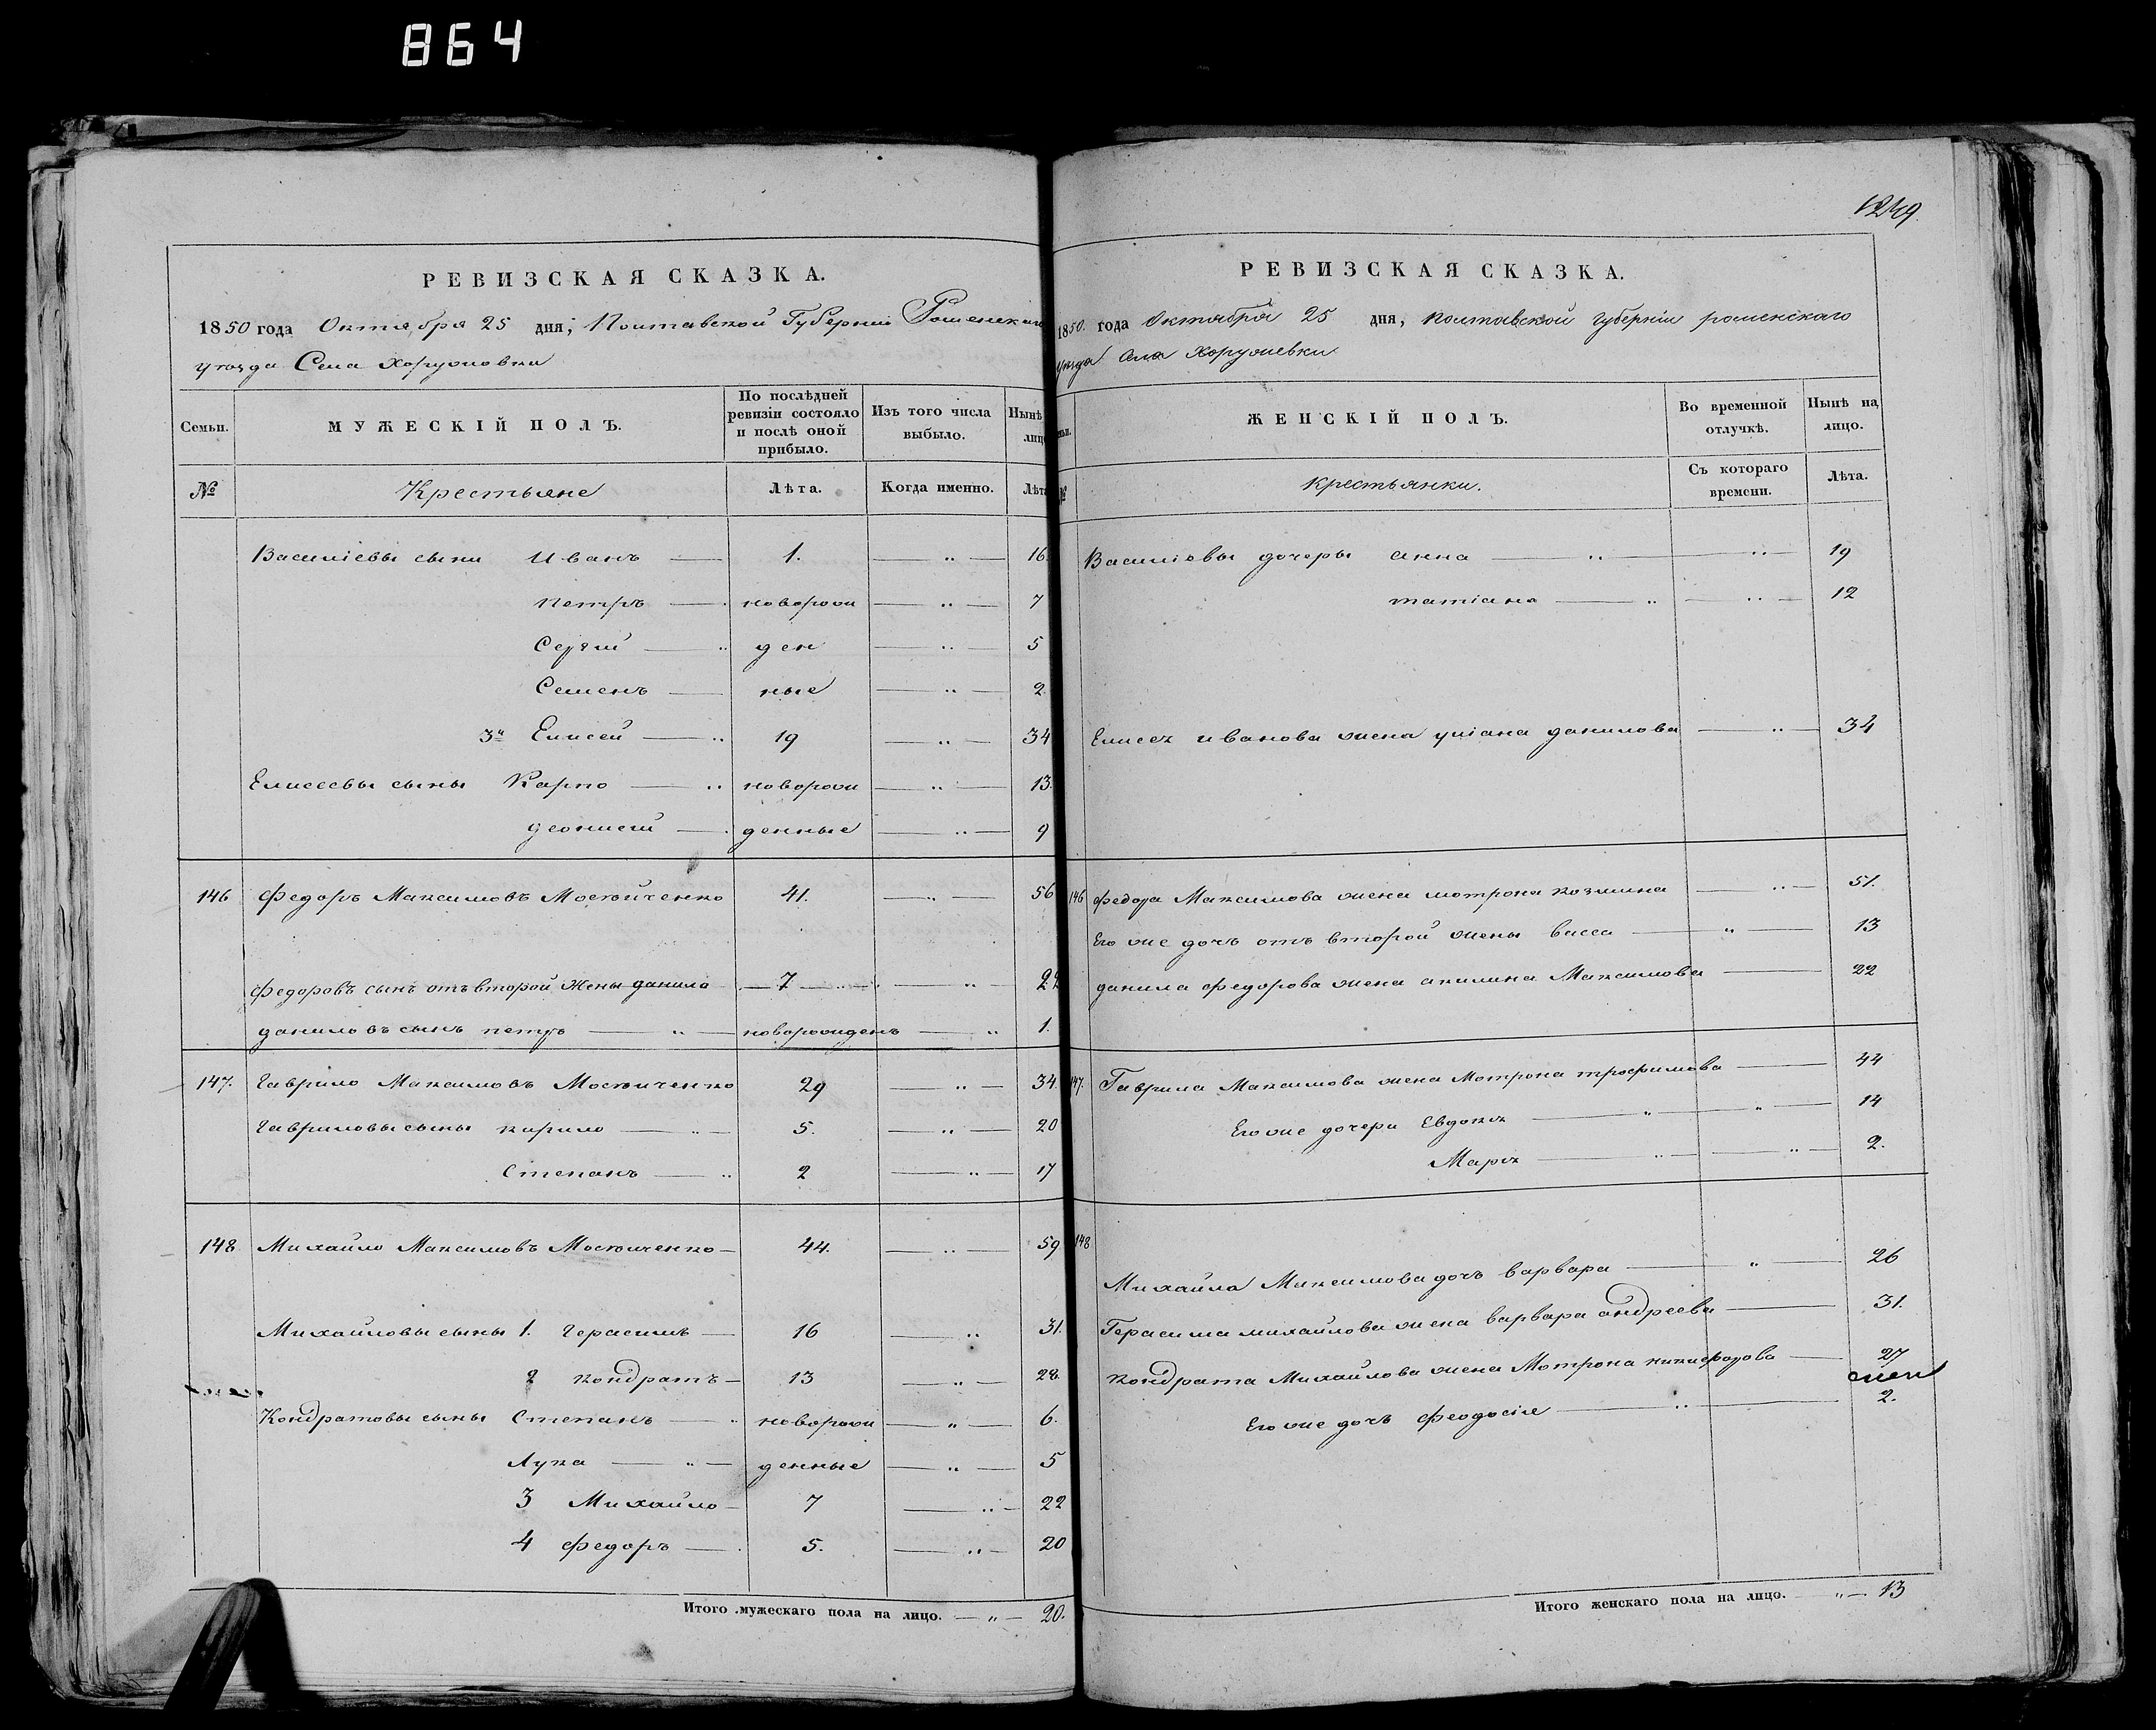 864
РЕВИЗСКАЯ СКАЗКА.
1850 года Октября 25 дня, Полтавской Губерніи Роменскаго
уѣзда Села Хоружовки
Семьи. МУЖЕСКІЙ ПОЛЪ. По послѣдней ревизіи состояло и послѣ оной прибыло. Изъ того числа выбыло. Нынѣ лицо
№ Крестьяне Лѣта. Когда именно. Лѣта
Василіевы сыни Иванъ — 1. — „ — 16.
Петръ — новорож — „ — 7
Сергій — „ ден — „ — 5
Семенъ — ные — „ — 2.
3й Елисей — „ 19 — „ — 34
Елисеевы сыны Карпо — „ новорож — „ — 13.
деонисій — денные — „ — 9
146 Федоръ Максимовъ Москъйченко 41. — „ — 56
Федоровъ сынъ отъ второй жены данило — 7 — „ — 22
даниловъ сынъ петръ — „ — новорожденъ — „ 1.
147. Гаврило Максимовъ Москиченко 29 — „ — 34.
Гавриловы сыны кирило — „ 5. — „ — 20
Степанъ — „ 2 — „ — 17
148 Михайло Максимовъ Москиченко — 44. — „ — 59
Михайловы сыны 1. Герасимъ — 16 — „ 31.
2 Кондратъ — 13 — „ — 28.
Кондратовы сыны Степанъ — „ новорож — „ — 6.
Лука — „ — денные — „ — 5
3 Михайло — 7 — „ — 22
4 Федоръ — 5. — „ — 20
Итого мужескаго пола на лицо. — „ — 20.
1249
РЕВИЗСКАЯ СКАЗКА.
1850. года Октября 25 дня, Полтавской губерніи роменскаго
уѣзда Села Хоружевки
ьи. ЖЕНСКІЙ ПОЛЪ. Во временной отлучкѣ. Нынѣ на лицо.
№ Крестьянки. Съ котораго времени. Лѣта.
Василіевы дочеры анна — „ — „ — 19
татіана — „ — „ — 12
Елисея иванова жена уліана данилова — „ — 34
146 Федора Максимова жена мотрона козмина — „ — 51.
Его же дочъ отъ второй жены васса — „ — 13
данила федорова жена акилина Максимова — 22
147. Гаврила Максимова жена Мотрона трофимова — 44
Его же дочери Евдокія — „ — „ — 14
Марія — „ — „ — 2.
148
Михайла Максимова дочъ варвара — „ — 26
Герасима михайлова жена варвара андреева — 31.
Кондрата Михайлова жена Мотрона никифорова — 27
Его же дочъ феодосія — „ — 2.
Итого женскаго пола на лицо. „ — 13